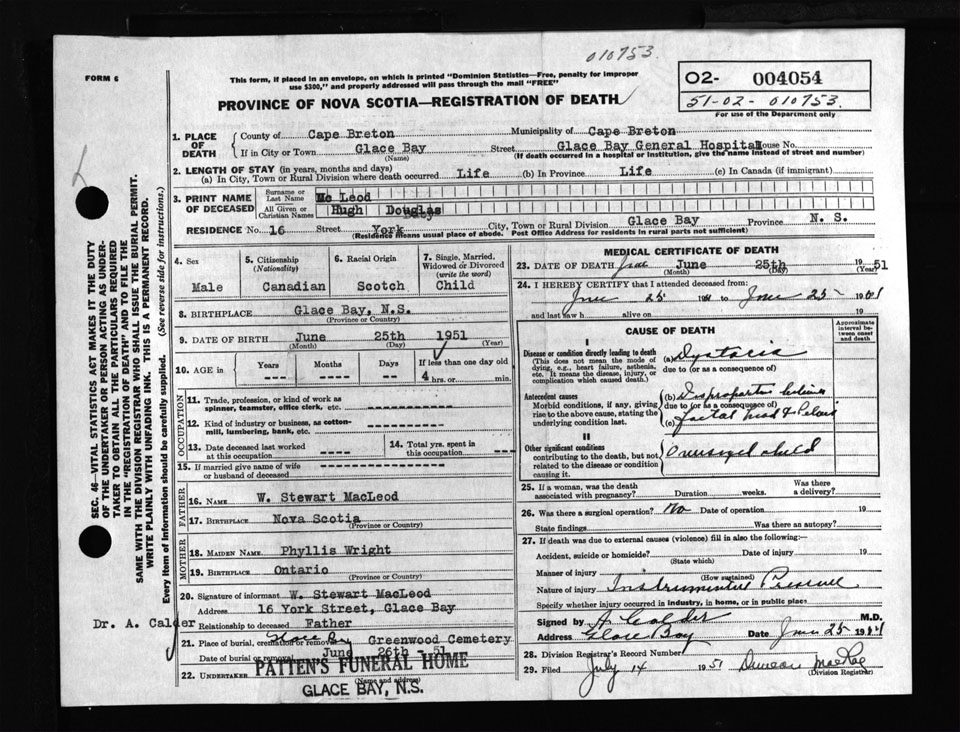 010753
FORM 6
This form, if placed in an envelope, on which is printed "Dominion Statistics—Free, penalty for improper
use $300," and properly addressed will pass through the mail "FREE"
O2- 004054
51-02-010753.
For use of the Department only
PROVINCE OF NOVA SCOTIA—REGISTRATION OF DEATH
SEC. 46—VITAL STATISTICS ACT MAKES IT THE DUTY
OF THE UNDERTAKER OR PERSON ACTING AS UNDER-
TAKER TO OBTAIN ALL THE PARTICULARS REQUIRED
IN THE "REGISTRATION OF DEATH" AND TO FILE THE
SAME WITH THE DIVISION REGISTRAR WHO SHALL ISSUE THE BURIAL PERMIT.
WRITE PLAINLY WITH UNFADING INK. THIS IS A PERMANENT RECORD.
Every item of information should be carefully supplied. (See reverse side for instructions.)
1. PLACE OF DEATH County of Cape Breton Municipality of Cape Breton
If in City or Town Glace Bay Street Glace Bay General Hospital House No.
(Name) (If death occurred in a hospital or institution, give the name instead of street and number)
2. LENGTH OF STAY (in years, months and days)
(a) In City, Town or Rural Division where death occurred Life (b) In Province Life (c) In Canada (if immigrant)
3. PRINT NAME OF DECEASED Surname or Last Name Mc Leod
All Given or Christian Names Hugh Douglas
RESIDENCE No. 16 Street York City, Town or Rural Division Glace Bay Province N. S.
(Residence means usual place of abode. Post Office Address for residents in rural parts not sufficient)
4. Sex 5. Citizenship (Nationality) 6. Racial Origin 7. Single, Married, Widowed or Divorced (write the word)
Male Canadian Scotch Child
8. BIRTHPLACE Glace Bay, N.S.
(Province or Country)
9. DATE OF BIRTH June 25th 1951
(Month) (Day) (Year)
10. AGE in Years Months Days If less than one day old
--- --- -- 4 hrs. or min.
OCCUPATION
11. Trade, profession, or kind of work as
spinner, teamster, office clerk, etc.
12. Kind of industry or business, as cotton-
mill, lumbering, bank, etc.
13. Date deceased last worked at this occupation 14. Total yrs. spent in this occupation
15. If married give name of wife
or husband of deceased
FATHER
16. NAME W. Stewart MacLeod
17. BIRTHPLACE Nova Scotia
(Province or Country)
MOTHER
18. MAIDEN NAME Phyllis Wright
19. BIRTHPLACE Ontario
(Province or Country)
20. Signature of informant W. Stewart MacLeod
Address 16 York Street, Glace Bay
Dr. A. Calder
Relationship to deceased Father
21. Place of burial, cremation or removal Glace Bay Greenwood Cemetery
Date of burial or removal June 26th -51
22. UNDERTAKER PATTEN'S FUNERAL HOME
(Name and address)
GLACE BAY, N.S.
MEDICAL CERTIFICATE OF DEATH
23. DATE OF DEATH June June 25th 1951
(Month) (Day) (Year)
24. I HEREBY CERTIFY that I attended deceased from:
June 25 to June 25
and last saw h alive on 19
CAUSE OF DEATH
Approximate interval between onset and death
I
Disease or condition directly leading to death
(This does not mean the mode of
dying, e.g., heart failure, asthenia,
etc. It means the disease, injury, or
complication which caused death.)
(a) Dystocia
due to (or as a consequence of)
Antecedent causes
Morbid conditions, if any, giving
rise to the above cause, stating the
underlying condition last.
(b) Disproportion between
due to (or as a consequence of)
(c) foetal head & Pelvis
II
Other significant conditions
contributing to the death, but not
related to the disease or condition
causing it.
Oversized child
25. If a woman, was the death associated with pregnancy? Duration weeks. Was there a delivery?
26. Was there a surgical operation? No Date of operation 19
State findings Was there an autopsy?
27. If death was due to external causes (violence) fill in also the following:—
Accident, suicide or homicide? Date of injury 19
(State which)
Manner of injury
(How sustained)
Nature of injury Instrumental Pressure
Specify whether injury occurred in industry, in home, or in public place
Signed by A Calder M.D.
Address Glace Bay Date June 25
28. Division Registrar's Record Number
29. Filed July 14 1951 Duncan MacRae
(Division Registrar)